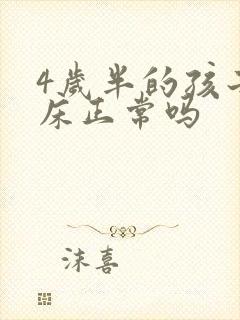 4岁半的孩子
床正常吗
沫喜